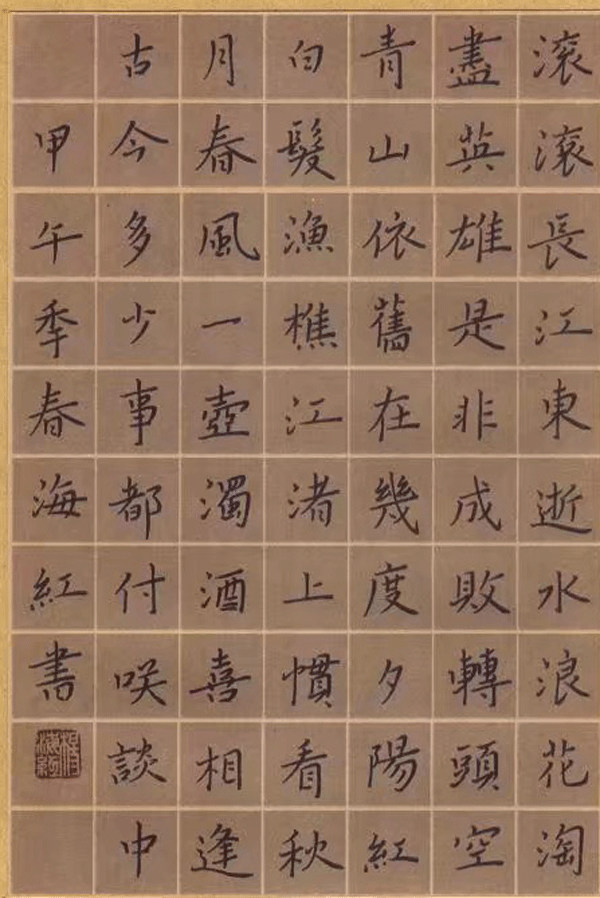 滚滚長江東逝水浪花淘
盡英雄是非成敗轉頭空
青山依舊在幾度夕陽紅
白髮漁樵江渚上慣看秋
月春風一壺濁酒喜相逢
古今多少事都付咲談中
甲午季春海紅書